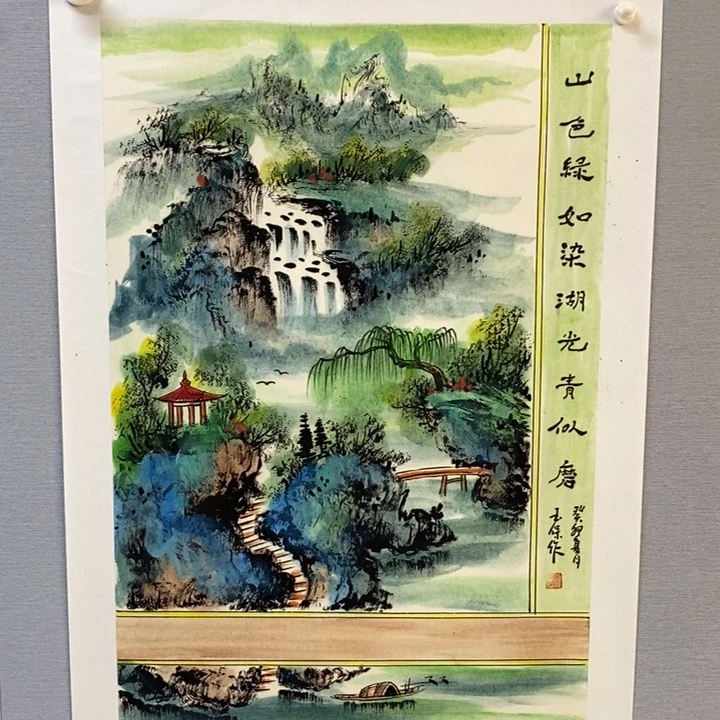 山色緑如染湖光青似磨
癸卯夏月
玉保作